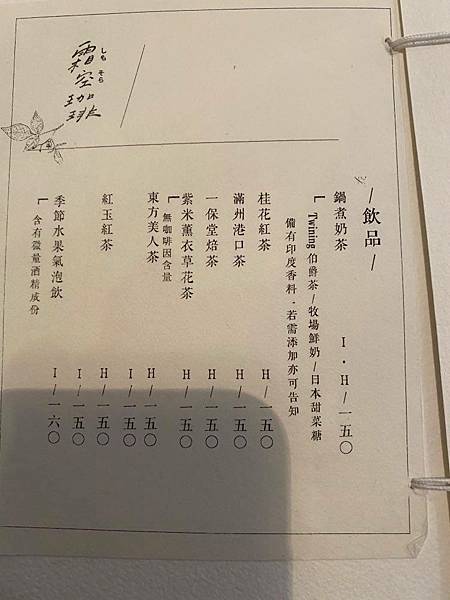 霜空珈琲
しも そら
/飲品/
鍋煮奶茶 I・H/一五〇
└ Twining 伯爵茶/牧場鮮奶/日本甜菜糖
備有印度香料・若需添加亦可告知
桂花紅茶 H/一五〇
滿州港口茶 H/一五〇
一保堂焙茶 H/一五〇
紫米薰衣草花茶 H/一五〇
└ 無咖啡因含量
東方美人茶 H/一五〇
I/一五〇
紅玉紅茶 H/一五〇
I/一五〇
季節水果氣泡飲 I/一六〇
└ 含有微量酒精成份